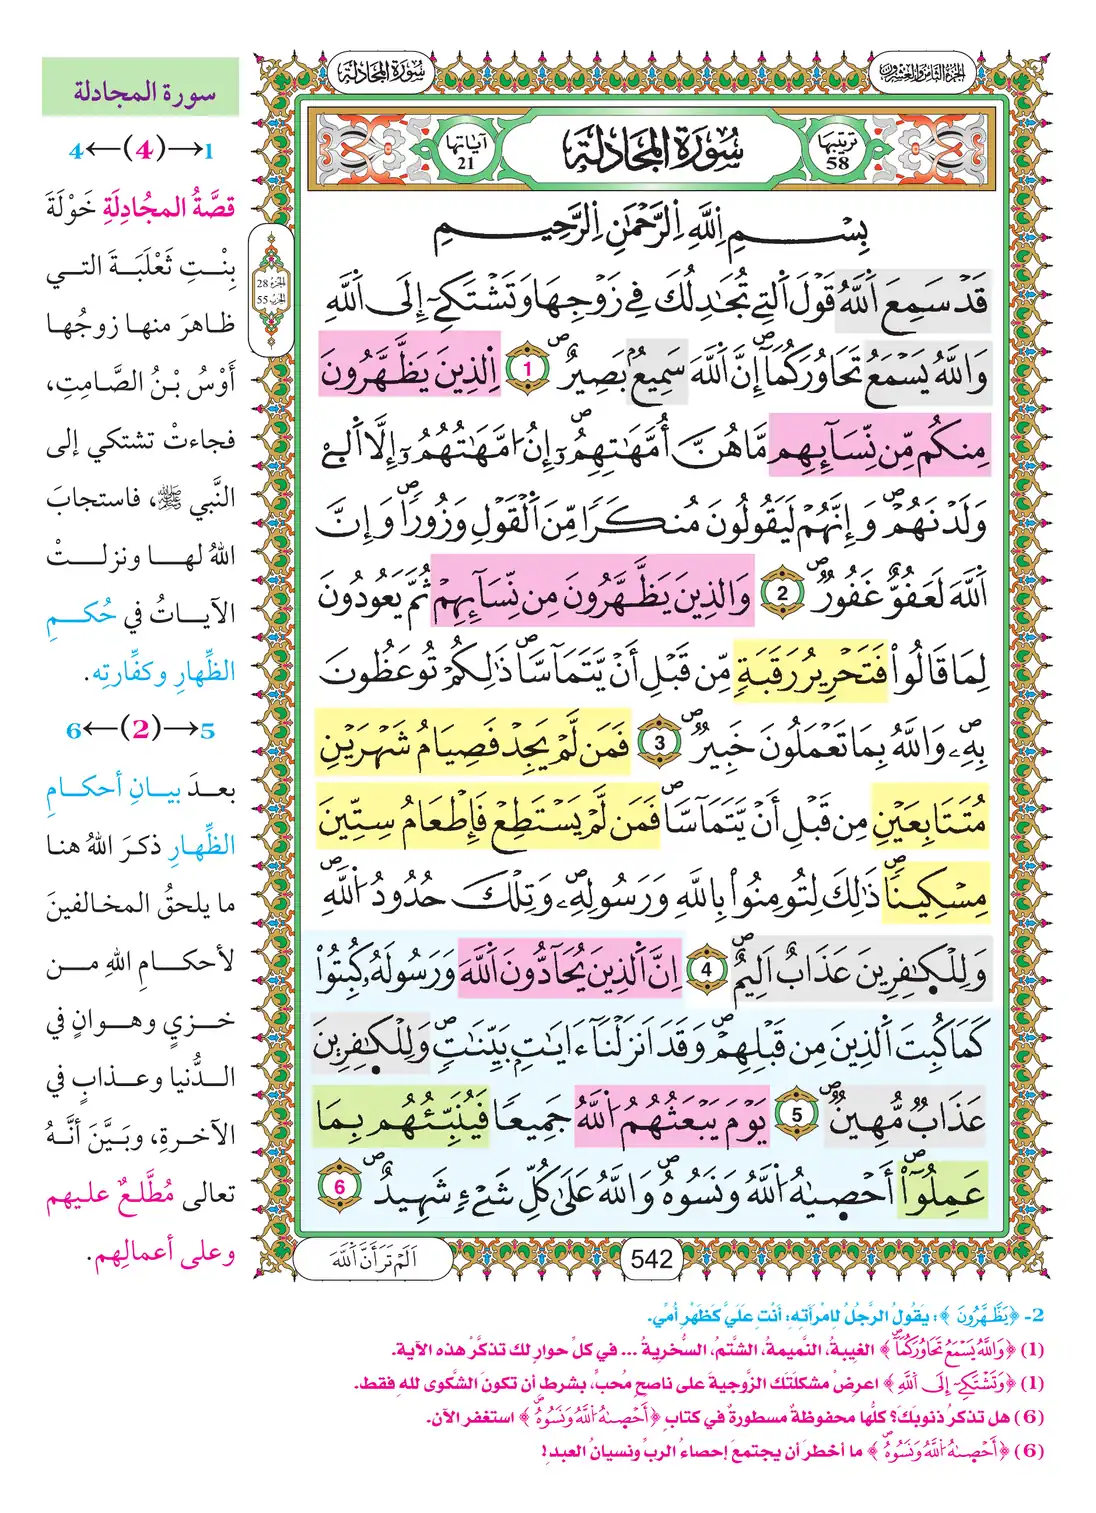 الجزء الثامن والعشرون
سورة المجادلة
ترتيبها 58
سُورَةُ المُجَادلة
آياتها 21
بِسْمِ اِللَّهِ اِلرَّحْمَٰنِ اِلرَّحِيمِ
قَدْ سَمِعَ اَللَّهُ قَوْلَ اَلتِے تُجَٰدِلُكَ فِے زَوْجِهَا وَتَشْتَكِےٓ إِلَى اَللَّهِ
وَاللَّهُ يَسْمَعُ تَحَاوُرَكُمَآۖ إِنَّ اَللَّهَ سَمِيعُۢ بَصِيرٌۖ 1 اِلذِينَ يَظَّهَّرُونَ
مِنكُم مِّن نِّسَآئِهِم مَّا هُنَّ أُمَّهَٰتِهِمُۥٓۖ إِنُ امَّهَٰتُهُمُۥٓ إِلَّا اَلَّٰٓےْ
وَلَدْنَهُمْۖ وَإِنَّهُمْ لَيَقُولُونَ مُنكَراٗ مِّنَ اَلْقَوْلِ وَزُوراٗۖ وَإِنَّ
اَللَّهَ لَعَفُوٌّ غَفُورٞۖ 2 وَالذِينَ يَظَّهَّرُونَ مِن نِّسَآئِهِمْ ثُمَّ يَعُودُونَ
لِمَا قَالُواْ فَتَحْرِيرُ رَقَبَةٖ مِّن قَبْلِ أَنْ يَّتَمَآسَّاۖ ذَٰلِكُمْ تُوعَظُونَ
بِهِۦۖ وَاللَّهُ بِمَا تَعْمَلُونَ خَبِيرٞۖ 3 فَمَن لَّمْ يَجِدْ فَصِيَامُ شَهْرَيْنِ
مُتَتَابِعَيْنِ مِن قَبْلِ أَنْ يَّتَمَآسَّاۖ فَمَن لَّمْ يَسْتَطِعْ فَإِطْعَامُ سِتِّينَ
مِسْكِيناٗۖ ذَٰلِكَ لِتُومِنُواْ بِاللَّهِ وَرَسُولِهِۦۖ وَتِلْكَ حُدُودُ اُللَّهِۖ
وَلِلْكَٰفِرِينَ عَذَابٌ اَلِيمٌۖ 4 اِنَّ اَلذِينَ يُحَآدُّونَ اَللَّهَ وَرَسُولَهُۥ كُبِتُواْ
كَمَا كُبِتَ اَلذِينَ مِن قَبْلِهِمْۖ وَقَدَ اَنزَلْنَآ ءَايَٰتِۢ بَيِّنَٰتٖۖ وَلِلْكَٰفِرِينَ
عَذَابٞ مُّهِينٞۖ 5 يَوْمَ يَبْعَثُهُمُ اُللَّهُ جَمِيعاٗ فَيُنَبِّئُهُم بِمَا
عَمِلُوٓاْۖ أَحْصَيٰهُ اُللَّهُ وَنَسُوهُۖ وَاللَّهُ عَلَىٰ كُلِّ شَےْءٖ شَهِيدٌۖ 6
542
اَلَمْ تَرَ أَنَّ اَللَّهَ
الجزء 28
الحزب 55
سورة المجادلة
1→(4)←4
قصَّةُ المجُادِلَةِ خَوْلَةَ
بِنْتِ ثَعْلَبَةَ التي
ظاهرَ منها زوجُها
أَوْسُ بْنُ الصَّامِتِ،
فجاءتْ تشتكي إلى
النَّبي ﷺ، فاستجابَ
اللهُ لها ونزلتْ
الآياتُ في حُكمِ
الظِّهارِ وكفِّارتِه.
5→(2)←6
بعدَ بيانِ أحكامِ
الظِّهارِ ذكرَ اللهُ هنا
ما يلحقُ المخالفينَ
لأحكامِ اللهِ من
خزيٍ وهوانٍ في
الدُّنيا وعذابٍ في
الآخرةِ، وبَيَّنَ أنَّهُ
تعالى مُطَّلعٌ عليهم
وعلى أعمالِهم.
2- ﴿يَظَّهَّرُونَ﴾: يَقُولُ الرَّجُلُ لِامْرَأتِهِ: أنْتِ عَلَيَّ كَظَهْرِ أمِّي.
(1) ﴿وَاللَّهُ يَسْمَعُ تَحَاوُرَكُمَآۖ﴾ الغيبةُ، النَّميمةُ، الشَّتمُ، السُّخريةُ ... في كلِّ حوارٍ لك تذكَّرْ هذه الآية.
(1) ﴿وَتَشْتَكِےٓ إِلَى اَللَّهِ﴾ اعرِضْ مشكلتَك الزَّوجيةَ على ناصحٍ مُحبٍّ، بشرطِ أن تكونَ الشَّكوى للهِ فقط.
(6) هل تذكرُ ذنوبَكَ؟ كلُّها محفوظةٌ مسطورةٌ في كتابٍ ﴿أَحْصَيٰهُ اُللَّهُ وَنَسُوهُۖ﴾ استغفر الآن.
(6) ﴿أَحْصَيٰهُ اُللَّهُ وَنَسُوهُۖ﴾ ما أخطرَ أن يجتمعَ إحصاءُ الربِّ ونسيانُ العبدِ!